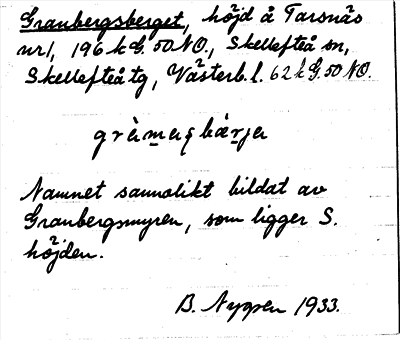 Granbergsberget, höjd å Tarsnäs
nr1, 196 k G. 50 NO., Skellefteå sn,
Skellefteå tg, Västerb. l. 62 k G. 50 NO.
Namnet sannolikt bildat av
Granbergsmyren, som ligger S.
höjden.
B. Nygren 1933.